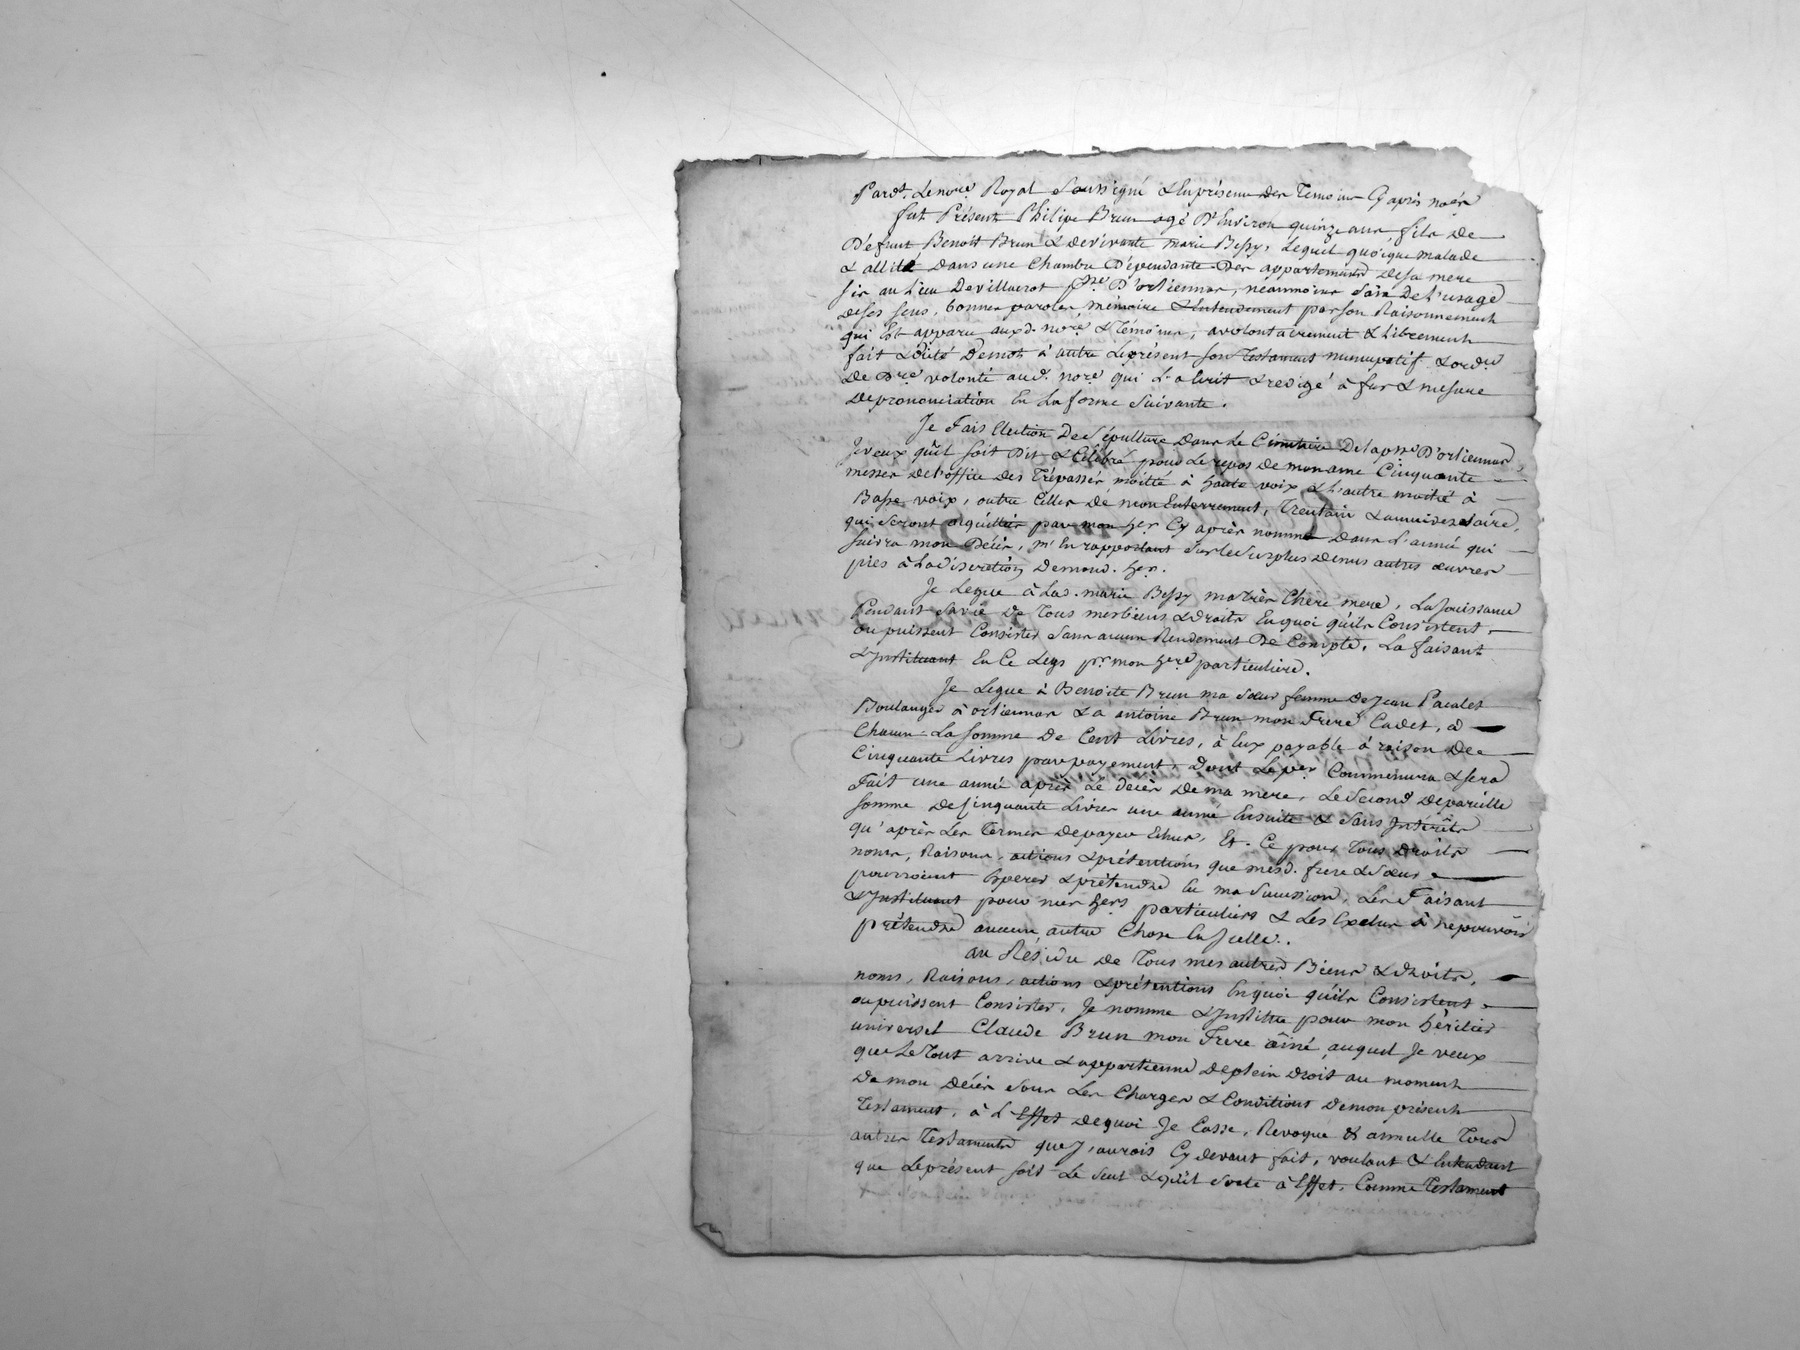 Pard.t Le nore Royal Soussigné & En présence des Temoins Cy après només
fut Présent Philipe Brun agé D'Environ quinze ans, fils De
Défunt Benoît Brun & De vivante marie Bessy, Lequel quoique malade
& allité Dans une Chambre Dépendante Des appartements De sa mere
sis au Lieu De villacrot psse D'orliennas, néanmoins Sain De L'usage
De ses sens, bonnes paroles, mémoire & Entendement par son Raisonnement
qui Est apparu aux d. nore & Témoins, a volontairement & Librement
fait & Dité De mot à autre Le présent son Testament nuncupatif & ord.re
De Dre volonté aud. nore qui L'a Ecrit & redigé à fur & mesure
De prononciation En La forme Suivante.
Je Fais Election De Sépulture Dans Le Cimetiere De la psse D'orliennas
Je veux qu'il soit Dit & Célébré pour Le repos De mon ame Cinquante
messes De L'office Des Trépassés, moitié à haute voix & L'autre moitié à
Basse voix, outre Celles De mon Enterrement, Trentain & anniversaire,
qui Seront acquittés par mon her Cy après nommé Dans L'année qui
suivra mon Décès, m'En rapportant Sur Le Surplus De mes autres œuvres
pies à La discretion De mond. her.
Je Legue à Lad. marie Bessy ma très Chere mere, La Jouissance
Pendant Sa vie De Tous mes biens & Droits En quoi qu'ils Consistent,
ou puissent Consister Sans aucun Rendement De Compte, La faisant
& Instituant En Ce Legs pr mon here particuliere.
Je Legue à Benoîte Brun ma Sœur femme De Jean Pacalet
Boulanger à orliennas & a antoine Brun mon Frere Cadet, à
Chacun La somme De Cent Livres, à Eux payable à raison De
Cinquante Livres par payement, Dont Le per Commencera & sera
Fait une année après Le Décès De ma mere, Le Second De pareille
somme De Cinquante Livres une année Ensuite & Sans Intérêts
qu'après Les Termes De payer Echus, Et Ce pour Tous Droits
noms, Raisons, actions & prétentions que mesd. frere & Sœur
pourroient Esperer & prétendre En ma Succession, Les Faisant
& Instituant pour mes hers particuliers & Les Exclus à ne pouvoir
prétendre aucune autre Chose En Icelle.
au Résidu De Tous mes autres Biens & Droits,
noms, Raisons, actions & prétentions En quoi qu'ils Consistent
ou puissent Consister, Je nomme & Institue pour mon héritier
universel Claude Brun mon Frere aîné, auquel Je veux
que Le Tout arrive & appartienne De plein Droit au moment
De mon Décès Sous Les Charges & Conditions De mon présent
Testament, à L'Effet De quoi Je Casse, Revoque & annulle Tous
autres Testaments que J'aurois Cy devant fait, voulant & Entendant
que Le présent soit Le Seul & qu'il Sorte à Effet, Comme Testament